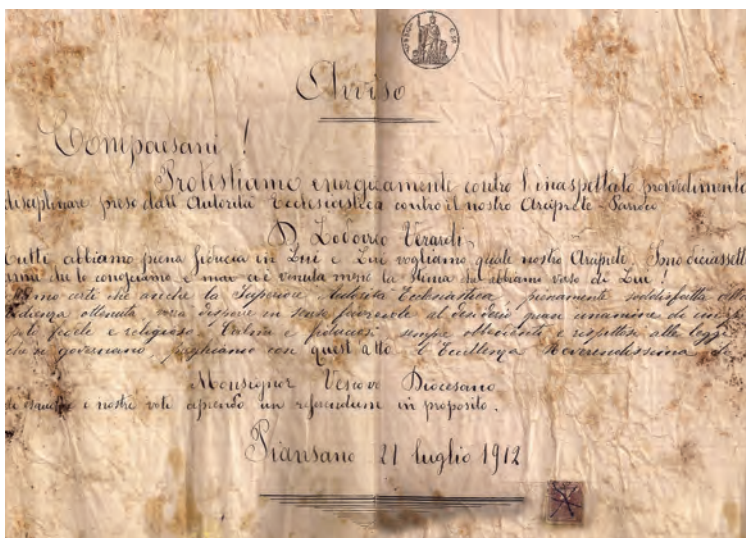 Avviso
Compaesani!
Protestiamo energicamente contro l'inaspettato provvedimento
disciplinare preso dall'Autorità Ecclesiastica contro il nostro Arciprete-Parroco
D. Lodovico Verardi
tutti abbiamo piena fiducia in Lui e Lui vogliamo quale nostro Arciprete. Sono diciassett
anni che lo conosciamo e mai ci è venuta meno la stima che abbiamo verso di Lui!
certi che anche la Superiore Autorità Ecclesiastica, pienamente soddisfatta
ottenuta, vorrà disporre in senso favorevole al desiderio quasi unanime di un
fedele e religioso. Calmi e fiduciosi sempre obbedienti e rispettosi alle leggi
che ne governano, preghiamo con quest'atto l'Eccellenza Reverendissima
Monsignor Vescovo Diocesano
di esaudire i nostri voti aprendo un referendum in proposito.
Piansano 21 luglio 1912